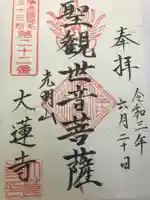 奉拝
令和三年
六月二十日
聖観世音菩薩
光明山
大蓮寺
第二十二番